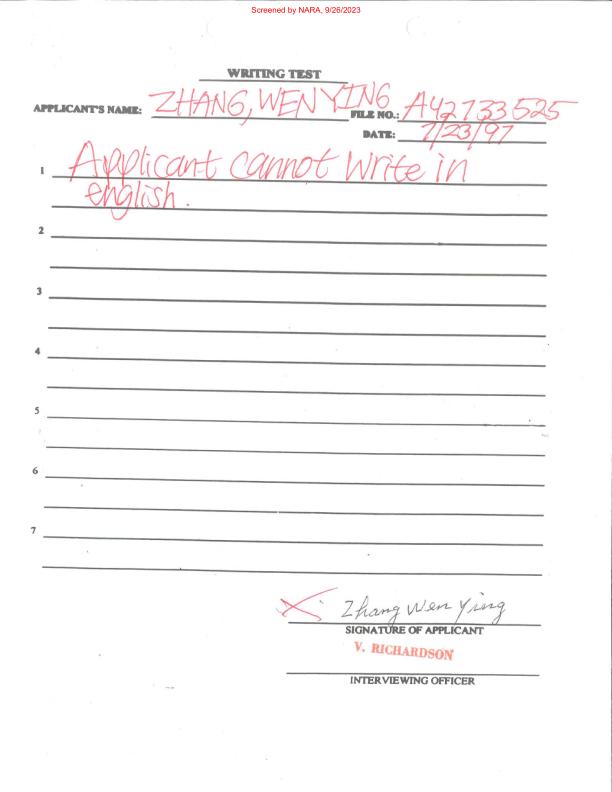 Screened by NARA, 9/26/2023
WRITING TEST
APPLICANT'S NAME: ZHANG, WEN YING FILE NO.: A42733525
DATE: 7/23/97
1 Applicant cannot write in
english.
2
3
4
5
6
7
X Zhang Wen Ying
SIGNATURE OF APPLICANT
V. RICHARDSON
INTERVIEWING OFFICER